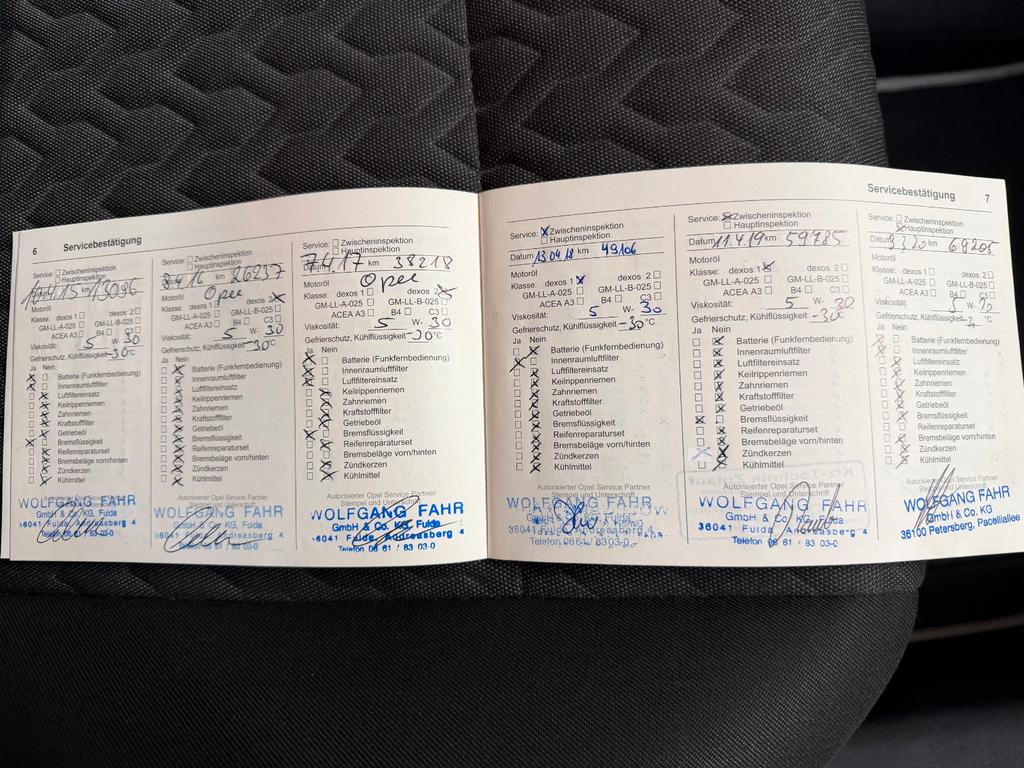 6 Servicebestätigung
Service: Zwischeninspektion
Hauptinspektion
17.4.15 13096
Motoröl
Klasse: dexos 1 dexos 2
GM-LL-A-025 GM-LL-B-025
ACEA A3 B4 C3
Viskosität: 5 W- 30
Gefrierschutz, Kühlflüssigkeit -30°C
Ja Nein
Batterie (Funkfernbedienung)
Innenraumluftfilter
Luftfiltereinsatz
Keilrippenriemen
Zahnriemen
Kraftstofffilter
Getriebeöl
Bremsflüssigkeit
Reifenreparaturset
Bremsbeläge vorn/hinten
Zündkerzen
Kühlmittel
WOLFGANG FAHR
GmbH & Co. KG, Fulda
36041 Fulda, Andreasberg 4
Telefon 06 61 / 83 03-0
Service: Zwischeninspektion
Hauptinspektion
8.4.16 km 26237
Motoröl Opel
Klasse: dexos 1 dexos 2
GM-LL-A-025 GM-LL-B-025
ACEA A3 B4 C3
Viskosität: 5 W- 30
Gefrierschutz, Kühlflüssigkeit -30°C
Ja Nein
Batterie (Funkfernbedienung)
Innenraumluftfilter
Luftfiltereinsatz
Keilrippenriemen
Zahnriemen
Kraftstofffilter
Getriebeöl
Bremsflüssigkeit
Reifenreparaturset
Bremsbeläge vorn/hinten
Zündkerzen
Kühlmittel
Autorisierter Opel Service Partner
Stempel und Unterschrift
WOLFGANG FAHR
GmbH & Co. KG, Fulda
36041 Fulda, Andreasberg 4
Telefon 06 61 / 83 03-0
Service: Zwischeninspektion
Hauptinspektion
Datum 7.4.17 km 38218
Motoröl Opel
Klasse: dexos 1 dexos 2
GM-LL-A-025 GM-LL-B-025
ACEA A3 B4 C3
Viskosität: 5 W- 30
Gefrierschutz, Kühlflüssigkeit -30°C
Ja Nein
Batterie (Funkfernbedienung)
Innenraumluftfilter
Luftfiltereinsatz
Keilrippenriemen
Zahnriemen
Kraftstofffilter
Getriebeöl
Bremsflüssigkeit
Reifenreparaturset
Bremsbeläge vorn/hinten
Zündkerzen
Kühlmittel
Autorisierter Opel Service Partner
Stempel und Unterschrift
WOLFGANG FAHR
GmbH & Co. KG, Fulda
36041 Fulda, Andreasberg 4
Telefon 06 61 / 83 03-0
Servicebestätigung 7
Service: Zwischeninspektion
Hauptinspektion
Datum 13.04.18 km 49106
Motoröl
Klasse: dexos 1 dexos 2
GM-LL-A-025 GM-LL-B-025
ACEA A3 B4 C3
Viskosität: 5 W- 30
Gefrierschutz, Kühlflüssigkeit -30°C
Ja Nein
Batterie (Funkfernbedienung)
Innenraumluftfilter
Luftfiltereinsatz
Keilrippenriemen
Zahnriemen
Kraftstofffilter
Getriebeöl
Bremsflüssigkeit
Reifenreparaturset
Bremsbeläge vorn/hinten
Zündkerzen
Kühlmittel
Autorisierter Opel Service Partner
Stempel und Unterschrift
WOLFGANG FAHR
GmbH & Co. KG, Fulda
36041 Fulda, Andreasberg 4
Telefon 0661/ 8303-0
Service: Zwischeninspektion
Hauptinspektion
Datum 11.4.19 km 59785
Motoröl
Klasse: dexos 1 dexos 2
GM-LL-A-025 GM-LL-B-025
ACEA A3 B4 C3
Viskosität: 5 W- 30
Gefrierschutz, Kühlflüssigkeit -30°C
Ja Nein
Batterie (Funkfernbedienung)
Innenraumluftfilter
Luftfiltereinsatz
Keilrippenriemen
Zahnriemen
Kraftstofffilter
Getriebeöl
Bremsflüssigkeit
Reifenreparaturset
Bremsbeläge vorn/hinten
Zündkerzen
Kühlmittel
Autorisierter Opel Service Partner
Stempel und Unterschrift
WOLFGANG FAHR
GmbH & Co. KG, Fulda
36041 Fulda, Andreasberg 4
Telefon 06 61 / 83 03-0
Service: Zwischeninspektion
Hauptinspektion
Datum 9.3.20 km 69205
Motoröl
Klasse: dexos 1 dexos 2
GM-LL-A-025 GM-LL-B-025
ACEA A3 B4 C3
Viskosität: 5 W-
Gefrierschutz, Kühlflüssigkeit °C
Ja Nein
Batterie (Funkfernbedienung)
Innenraumluftfilter
Luftfiltereinsatz
Keilrippenriemen
Zahnriemen
Kraftstofffilter
Getriebeöl
Bremsflüssigkeit
Reifenreparaturset
Bremsbeläge vorn/hinten
Zündkerzen
Kühlmittel
Autorisierter Opel Service Partner
Stempel und Unterschrift
WOLFGANG FAHR
GmbH & Co. KG
36100 Petersberg, Pacelliallee